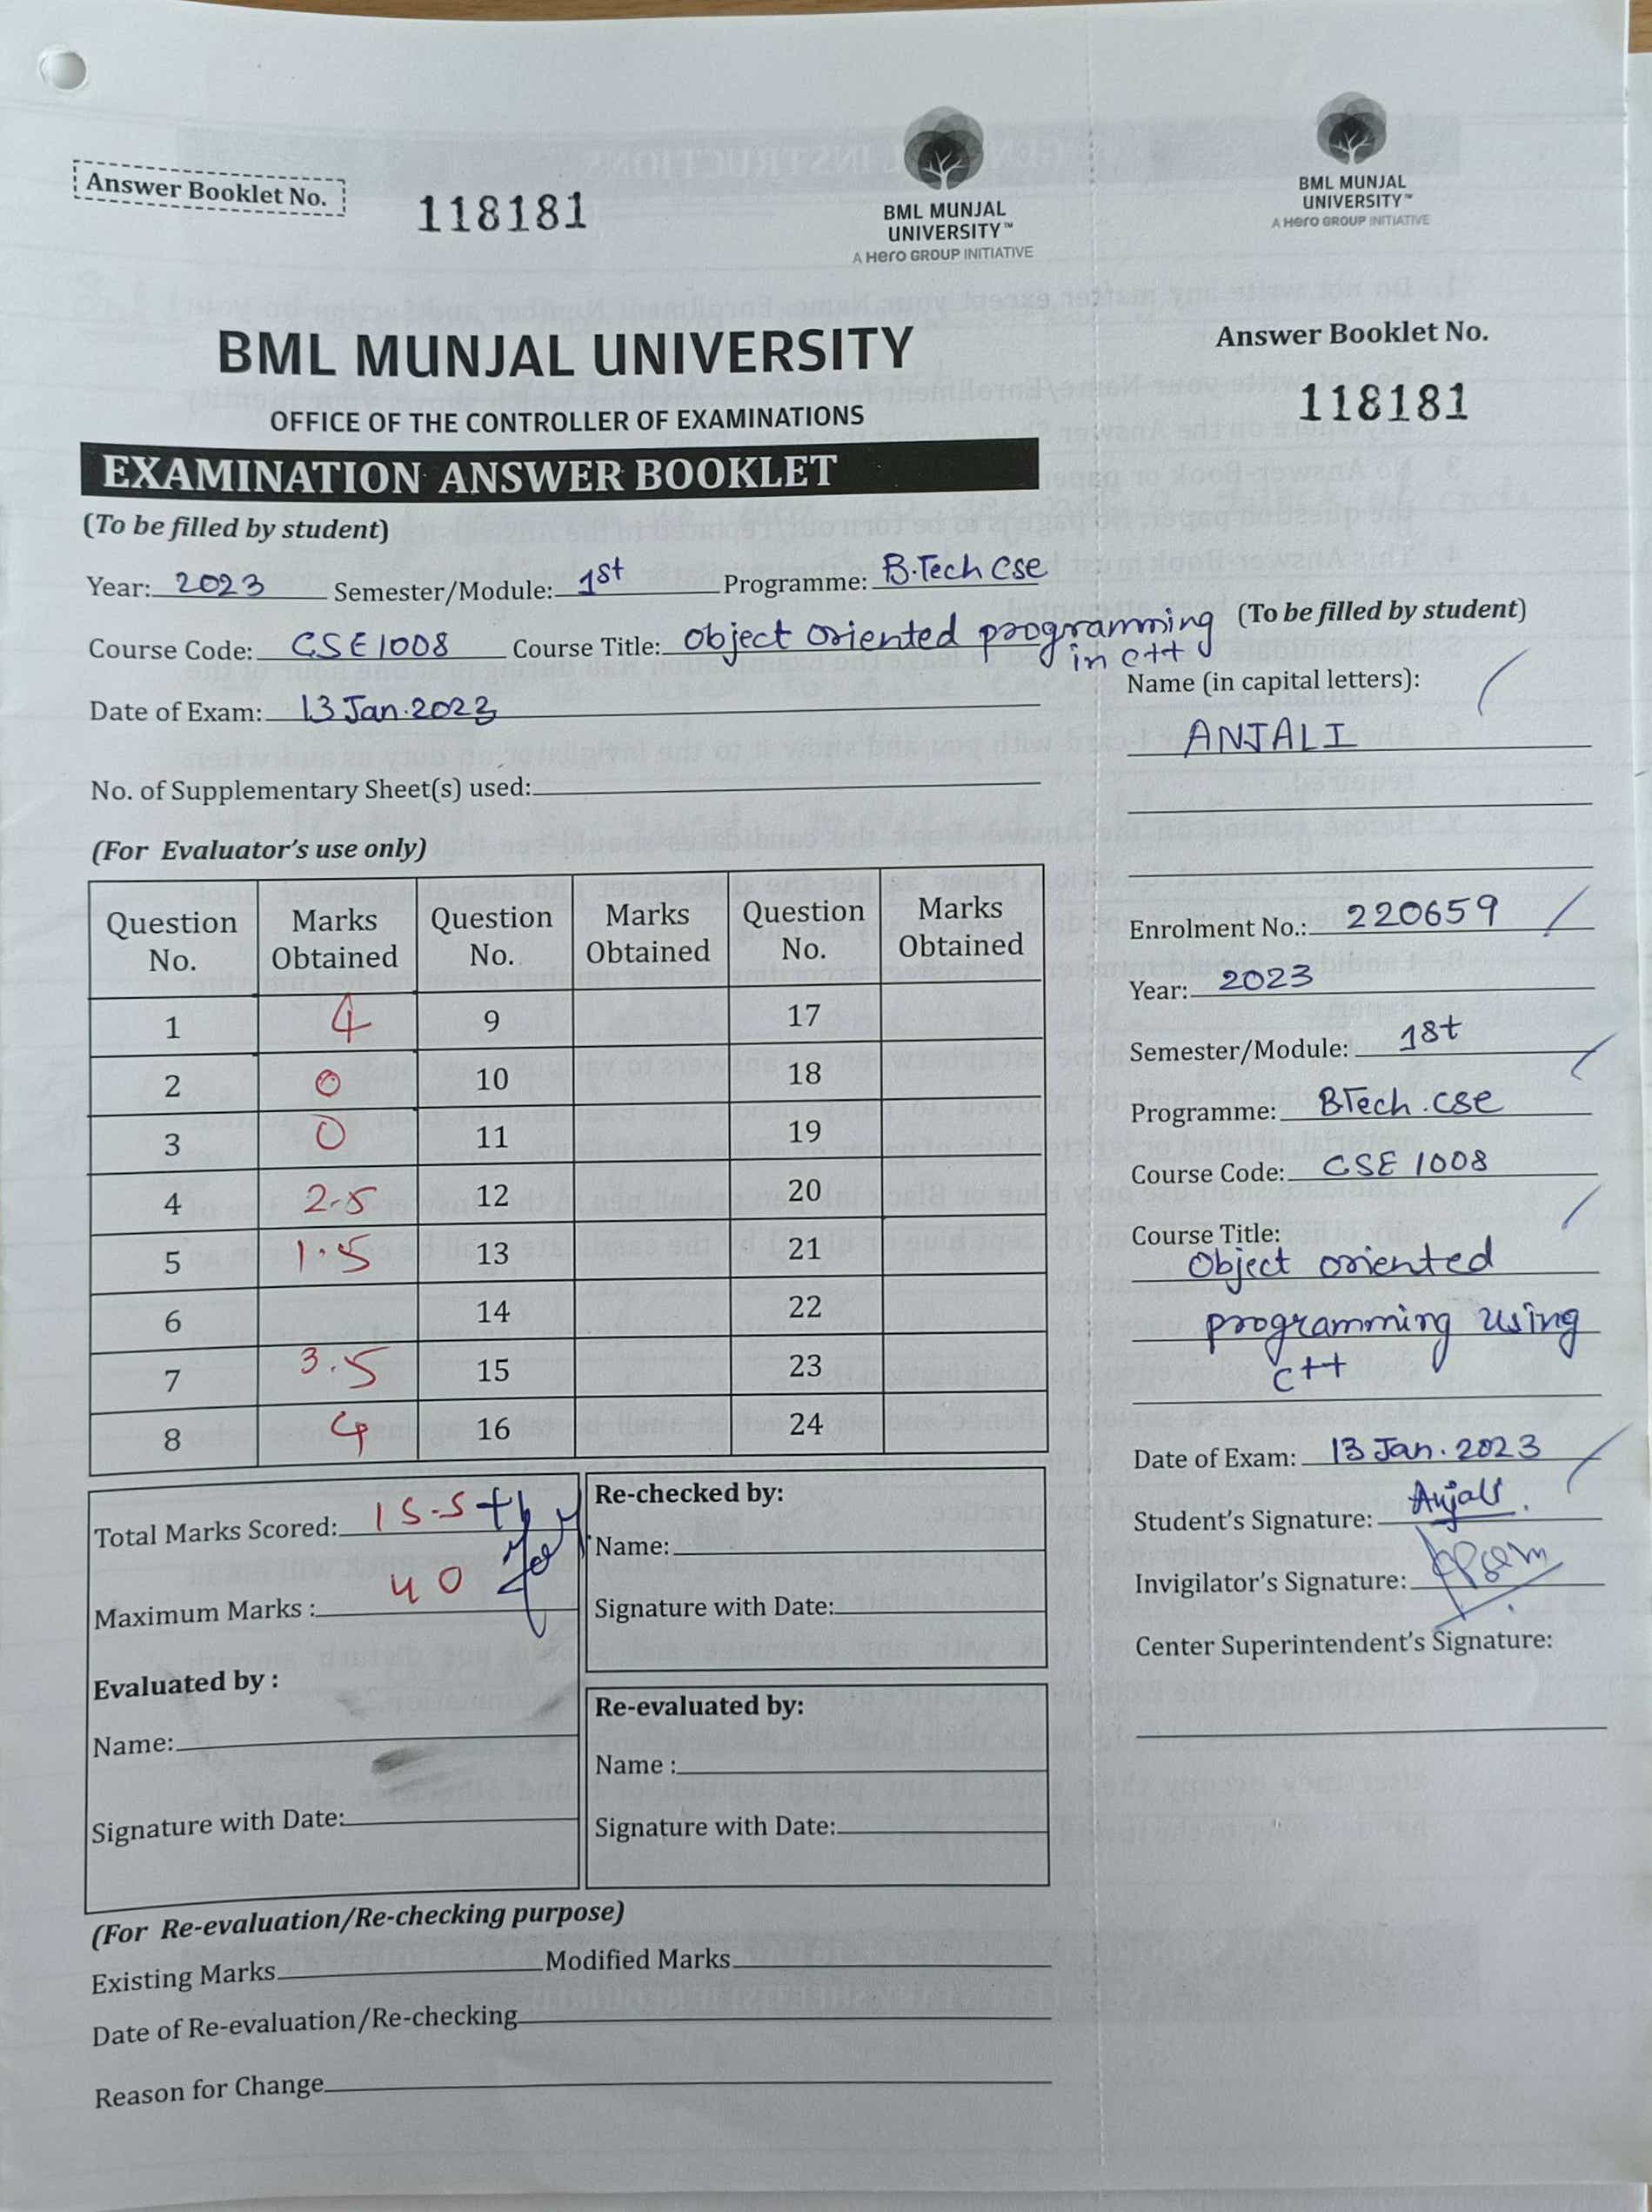 Answer Booklet No.
118181
BML MUNJAL
UNIVERSITY™
A Hero GROUP INITIATIVE
BML MUNJAL
UNIVERSITY™
A Hero GROUP INITIATIVE
BML MUNJAL UNIVERSITY
OFFICE OF THE CONTROLLER OF EXAMINATIONS
EXAMINATION ANSWER BOOKLET
(To be filled by student)
Year: 2023 Semester/Module: 1st Programme: B.Tech Cse
Course Code: CSE1008 Course Title: Object Oriented programming
in C++
Date of Exam: 13 Jan.2023
No. of Supplementary Sheet(s) used:
(For Evaluator's use only)
Question No. Marks Obtained Question No. Marks Obtained Question No. Marks Obtained
1 4 9 17
2 0 10 18
3 0 11 19
4 2.5 12 20
5 1.5 13 21
6 14 22
7 3.5 15 23
8 4 16 24
Total Marks Scored: 15.5
Maximum Marks : 40
Evaluated by :
Name:
Signature with Date:
Re-checked by:
Name:
Signature with Date:
Re-evaluated by:
Name :
Signature with Date:
(For Re-evaluation/Re-checking purpose)
Existing Marks Modified Marks
Date of Re-evaluation/Re-checking
Reason for Change
Answer Booklet No.
118181
(To be filled by student)
Name (in capital letters):
ANJALI
Enrolment No.: 220659
Year: 2023
Semester/Module: 1st
Programme: BTech.cse
Course Code: CSE 1008
Course Title:
Object oriented
programming using
C++
Date of Exam: 13 Jan.2023
Student's Signature: Anjali.
Invigilator's Signature:
Center Superintendent's Signature: